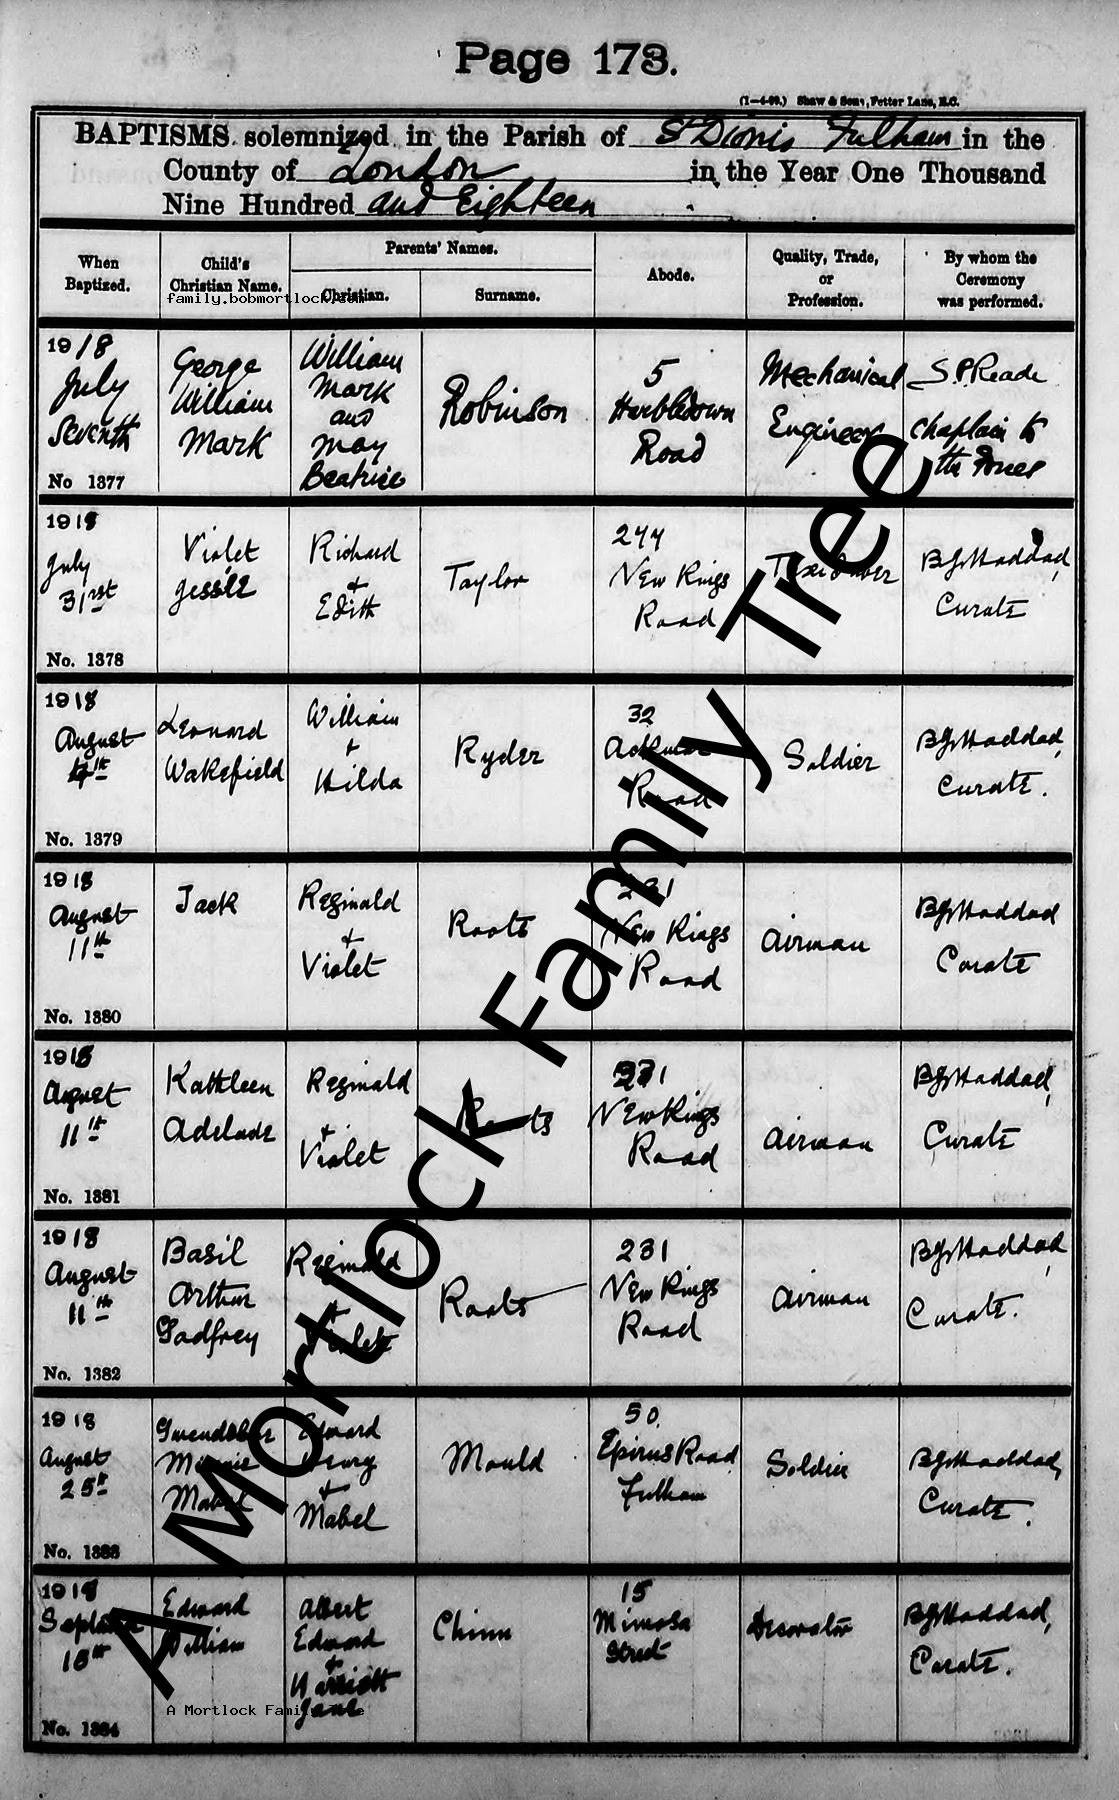 Page 173.
(1—4—98.) Shaw & Sons, Fetter Lane, E.C.
BAPTISMS solemnized in the Parish of St Dionis Fulham in the
County of London in the Year One Thousand
Nine Hundred and Eighteen
When Baptized.
Child's Christian Name.
Parents' Names.
Christian.
Surname.
Abode.
Quality, Trade, or Profession.
By whom the Ceremony was performed.
family.bobmortlock.com
1918
July
Seventh
No 1377
George
William
Mark
William
Mark
and
May
Beatrice
Robinson
5
Harbledown
Road
Mechanical
Engineer
S.P. Reade
Chaplain to
the Forces
1918
July
31rst
No. 1378
Violet
Jessie
Richard
+
Edith
Taylor
244
New Kings
Road
Taxi Driver
Haddad,
Curate
1918
August
4th
No. 1379
Leonard
Wakefield
William
+
Hilda
Ryder
32
Ackmar
Road
Soldier
Haddad,
Curate.
1918
August
11th
No. 1380
Jack
Reginald
+
Violet
Roots
231
New Kings
Road
Airman
Haddad
Curate
1918
August
11th
No. 1381
Kathleen
Adelade
Reginald
+
Violet
Roots
231
New Kings
Road
Airman
Haddad,
Curate
1918
August
11th
No. 1382
Basil
Arthur
Godfrey
Reginald
+
Violet
Roots
231
New Kings
Road
Airman
Haddad,
Curate.
1918
August
25th
No. 1383
Minnie
Mabel
Edward
Henry
+
Mabel
Mould
50
Epirus Road
Fulham
Soldier
Haddad,
Curate.
1918
September
No. 1384
Edward
William
Albert
Edward
+
Harriett
Jane
Chinn
15
Mimosa
Street
Decorator
Haddad,
Curate.
A Mortlock Family Tree
A Mortlock Family Tree